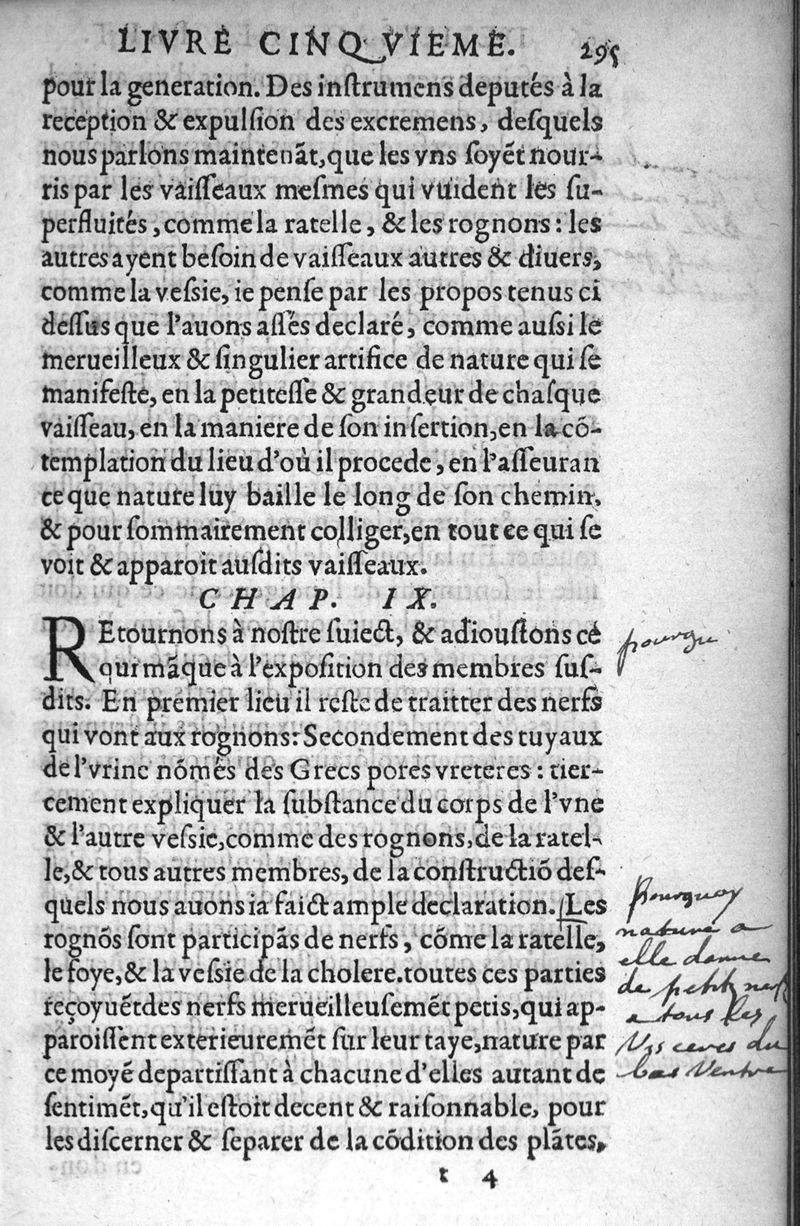 LIVRE CINQVIEME. 295
pour la generation. Des inſtrumens deputés à la
reception & expulſion des excremens, deſquels
nous parlons maintenãt, que les vns ſoyẽt nour-
ris par les vaiſſeaux meſmes qui vuident les ſu-
perfluités, comme la ratelle, & les rognons: les
autres ayent beſoin de vaiſſeaux autres & diuers,
comme la veſsie, ie penſe par les propos tenus ci
deſſus que l'auons aſſés declaré, comme auſsi le
merueilleux & ſingulier artifice de nature qui ſe
manifeſte, en la petiteſſe & grandeur de chaſque
vaiſſeau, en la maniere de ſon inſertion, en la cõ-
templation du lieu d'où il procede, en l'aſſeuran
ce que nature luy baille le long de ſon chemin,
& pour ſommairement colliger, en tout ce qui ſe
voit & apparoit auſdits vaiſſeaux.
CHAP. IX.
REtournons à noſtre ſuiect, & adiouſtons cé
qui mãque à l'expoſition des membres ſuſ-
dits. En premier lieu il reſte de traitter des nerfs
qui vont aux rognons: Secondement des tuyaux
de l'vrine nõmés des Grecs pores vreteres: tier-
cement expliquer la ſubſtance du corps de l'vne
& l'autre veſsie, comme des rognons, de la ratel-
le, & tous autres membres, de la conſtructiõ deſ-
quels nous auons ia faict ample declaration. Les
rognõs ſont participãs de nerfs, cõme la ratelle,
le foye, & la veſsie de la cholere. toutes ces parties
reçoyuẽt des nerfs merueilleuſemẽt petis, qui ap-
paroiſſent exterieuremẽt ſur leur taye, nature par
ce moyẽ departiſſant à chacune d'elles autant de
ſentimẽt, qu'il eſtoit decent & raiſonnable, pour
les diſcerner & ſeparer de la cõdition des plãtes,
t 4
pourquoy
nature a
elle donne
de petit nerf
a tous les
Visceres du
bas Ventre